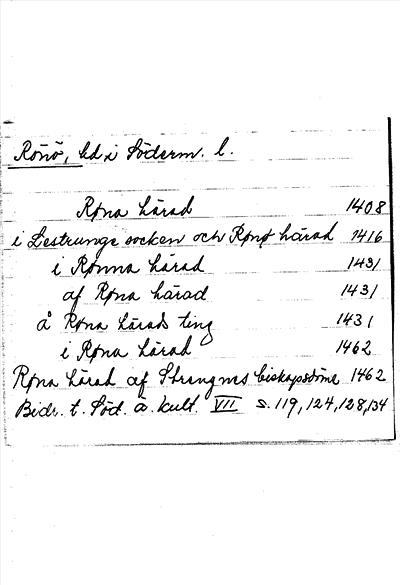 Rönö, hd i Söderm. l.
Røna härad 1408
i Lestrunge socken och Rønø härad 1416
i Rønna härad 1431
af Røna härad 1431
å Røna härads ting 1431
i Røna härad 1462
Røna härad af Strangnes biskopsdöme 1462
Bidr. t. Söd. ä. kult. VII s. 119, 124, 128, 134